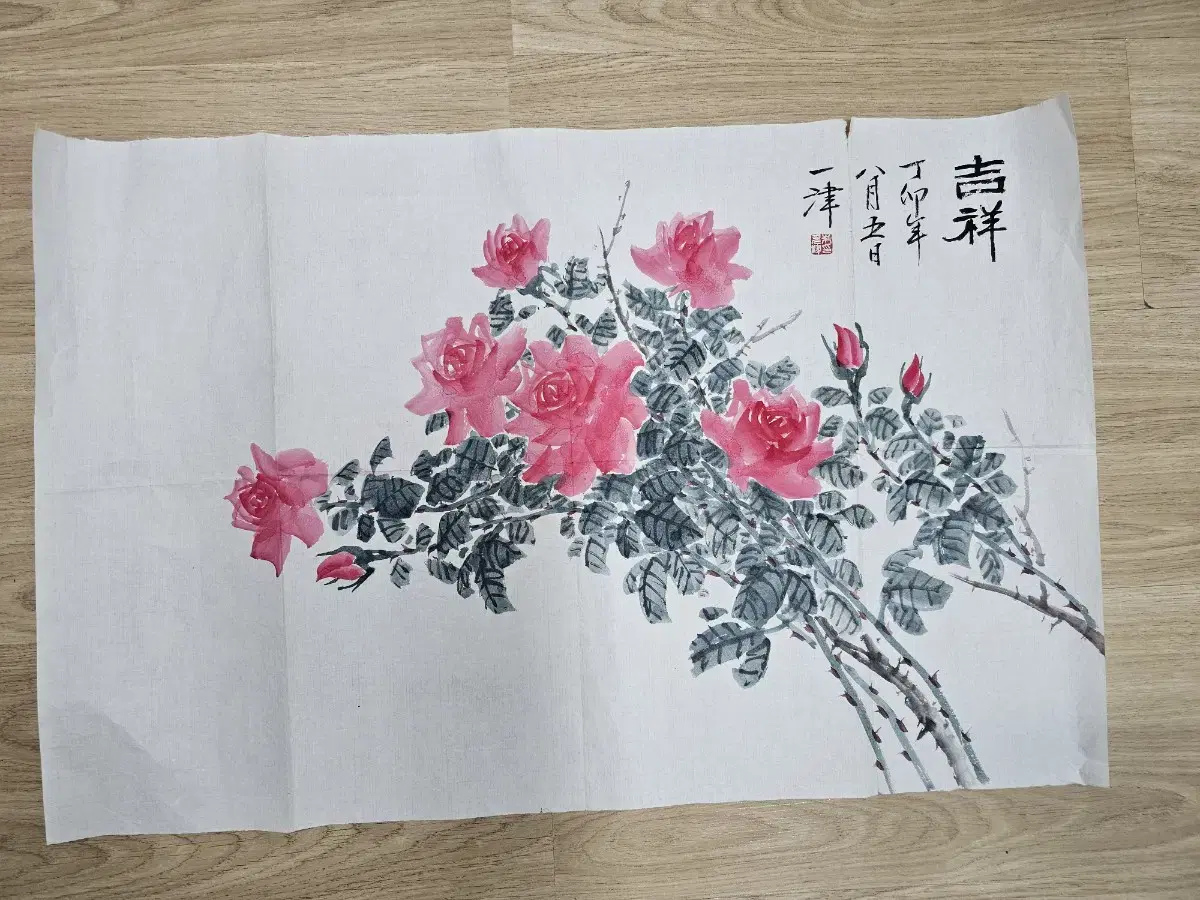 吉祥
丁卯年
八月五日
一津